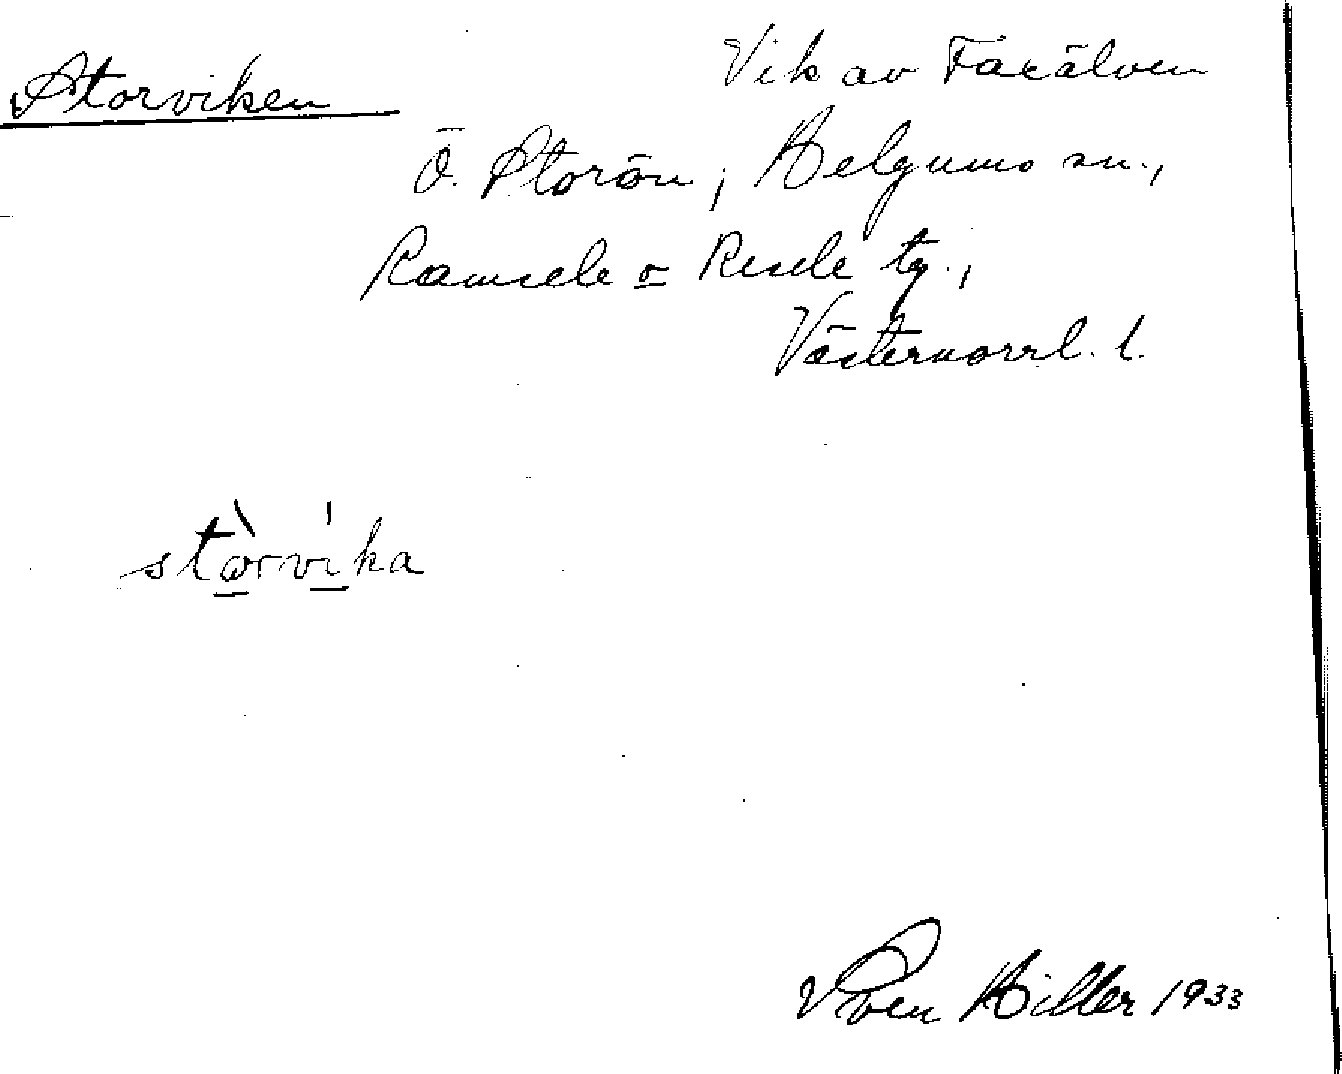 Storviken
Vik av Faxälven
Ö. Storön, Helgums sn.,
Ramsele o Resele tg.,
Västernorrl. l.
stòrvi̍ka
Sven Hiller 1933